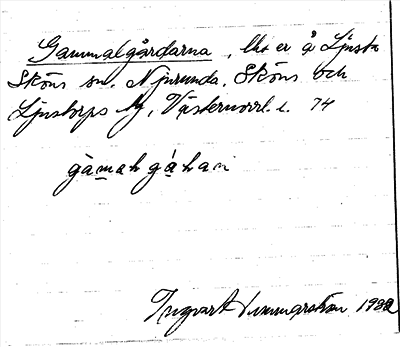 Gammalgårdarna, lht er å Ljusta
Sköns sn. Njurunda, Sköns och
Ljustorps tg, Västernorrl. l. 74
gàmahgáhan
Ingvart 1982